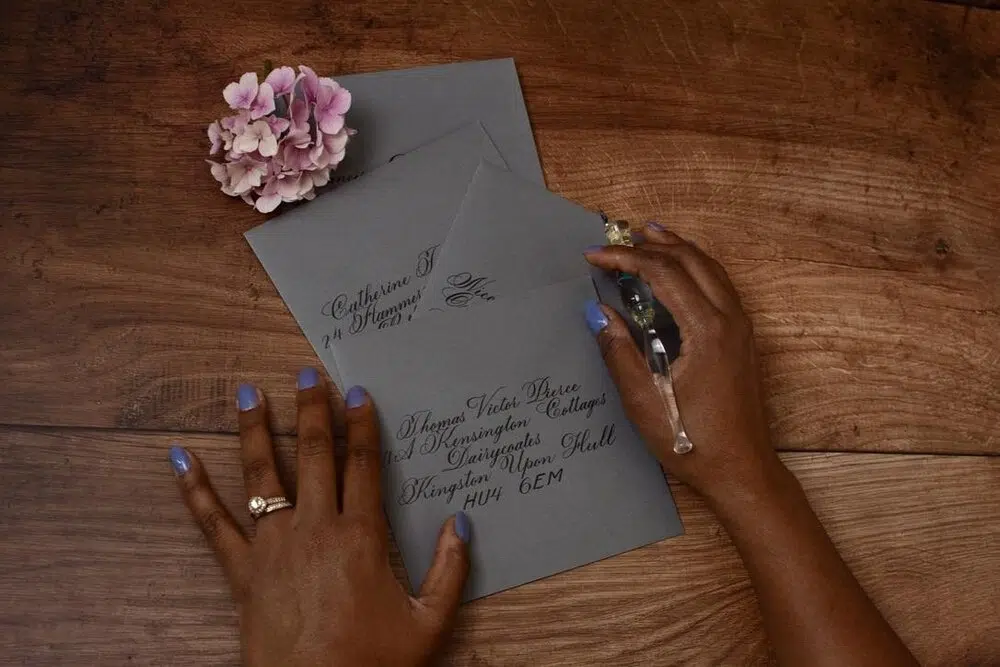 Catherine
24 Hammer
Alice
Thomas Victor Pierce
1A Kensington Cottages
Dairycoates
Kingston Upon Hull
HU4 6EM